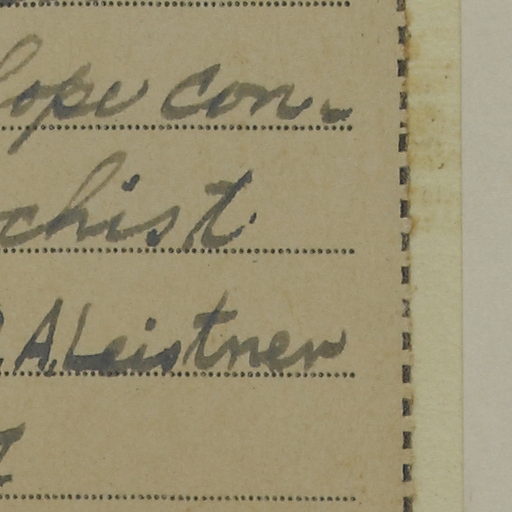 lope con-
chist
A. Leistner